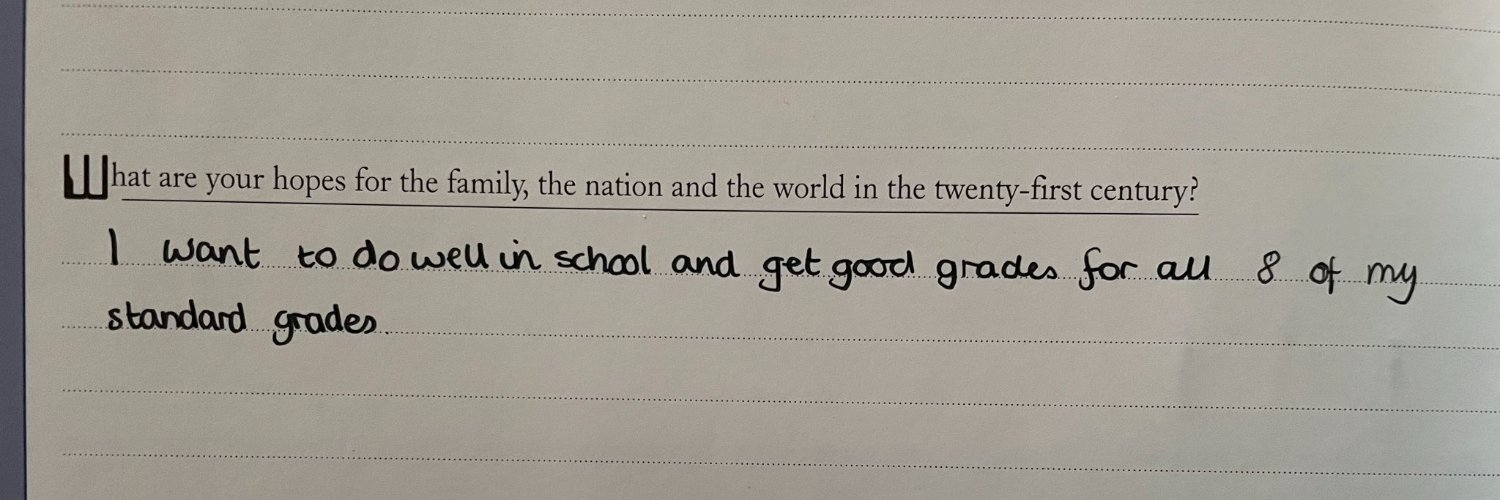 What are your hopes for the family, the nation and the world in the twenty-first century?
I want to do well in school and get good grades for all 8 of my
standard grades.